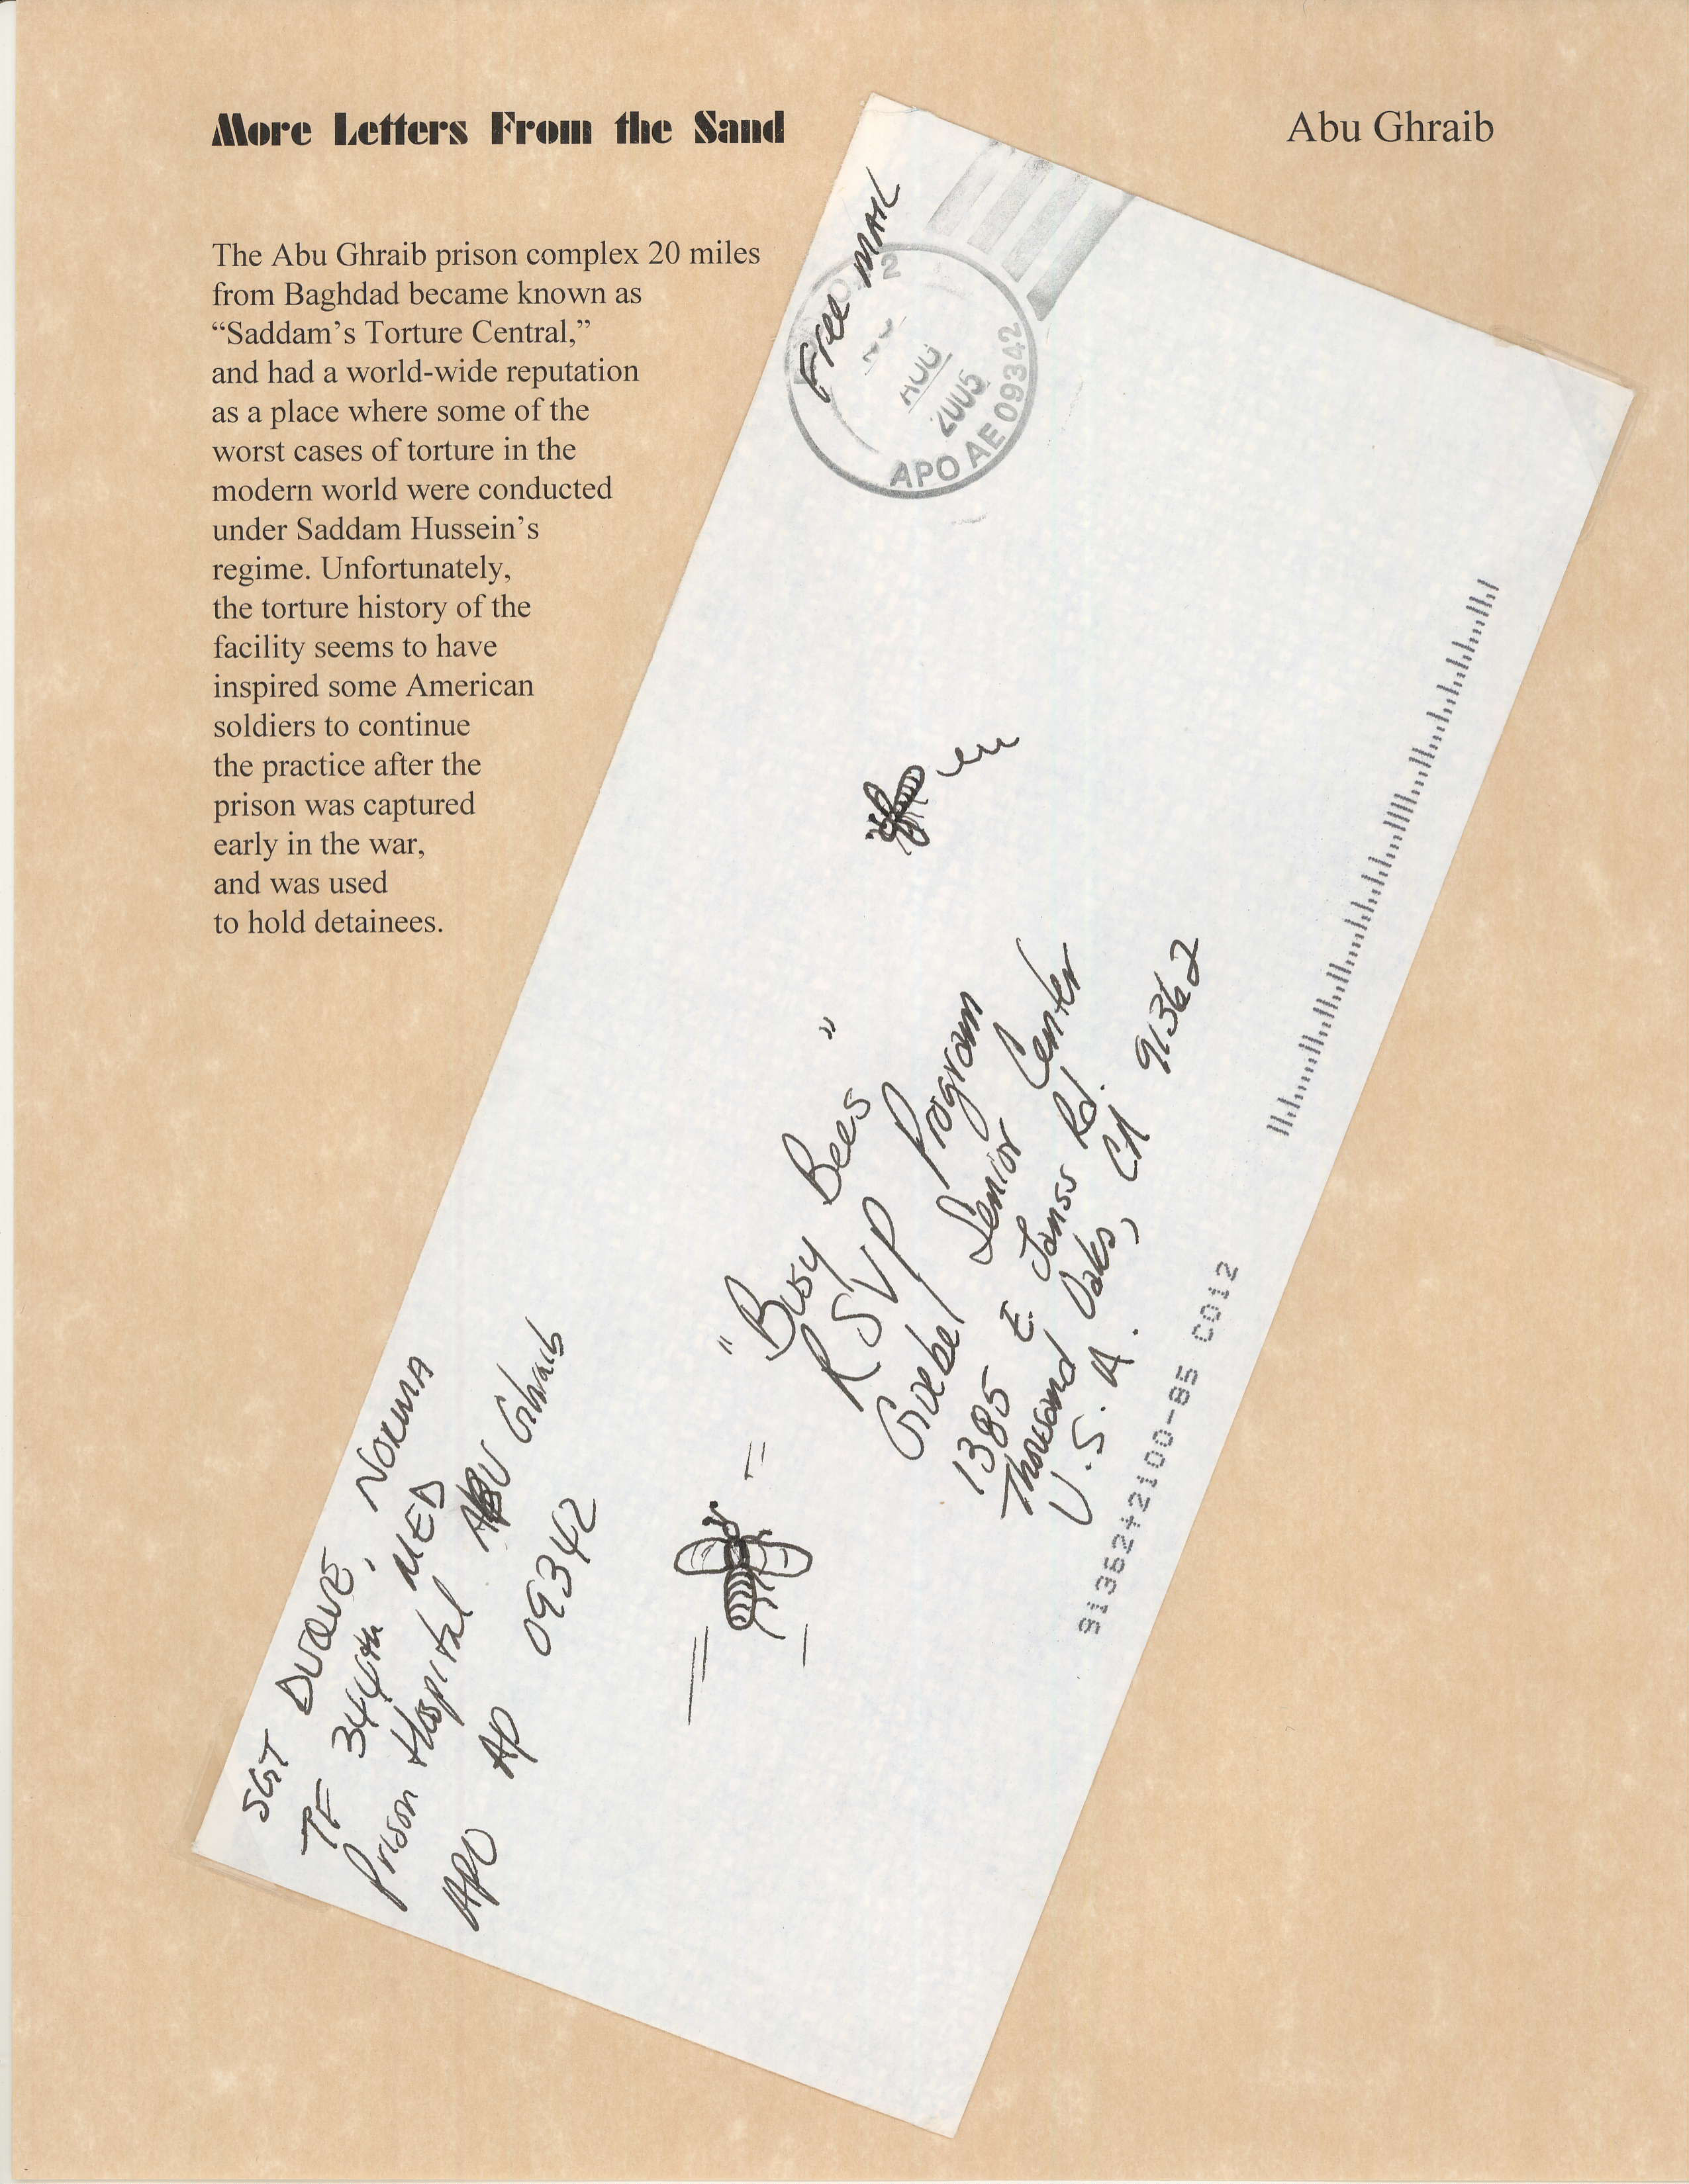 More Letters From the Sand
Abu Ghraib
The Abu Ghraib prison complex 20 miles
from Baghdad became known as
“Saddam’s Torture Central,”
and had a world-wide reputation
as a place where some of the
worst cases of torture in the
modern world were conducted
under Saddam Hussein’s
regime. Unfortunately,
the torture history of the
facility seems to have
inspired some American
soldiers to continue
the practice after the
prison was captured
early in the war,
and was used
to hold detainees.
SGT DUQUE, NORMA
TF 344th MED
Prison Hospital ABU Ghraib
APO AP 09342
Free MAIL
AUG
2005
APO AE 09342
"Busy Bees"
RSVP Program
Goebel Senior Center
1385 E. Janss Rd.
Thousand Oaks, CA 91362
U.S.A.
91362+2100-85 C012